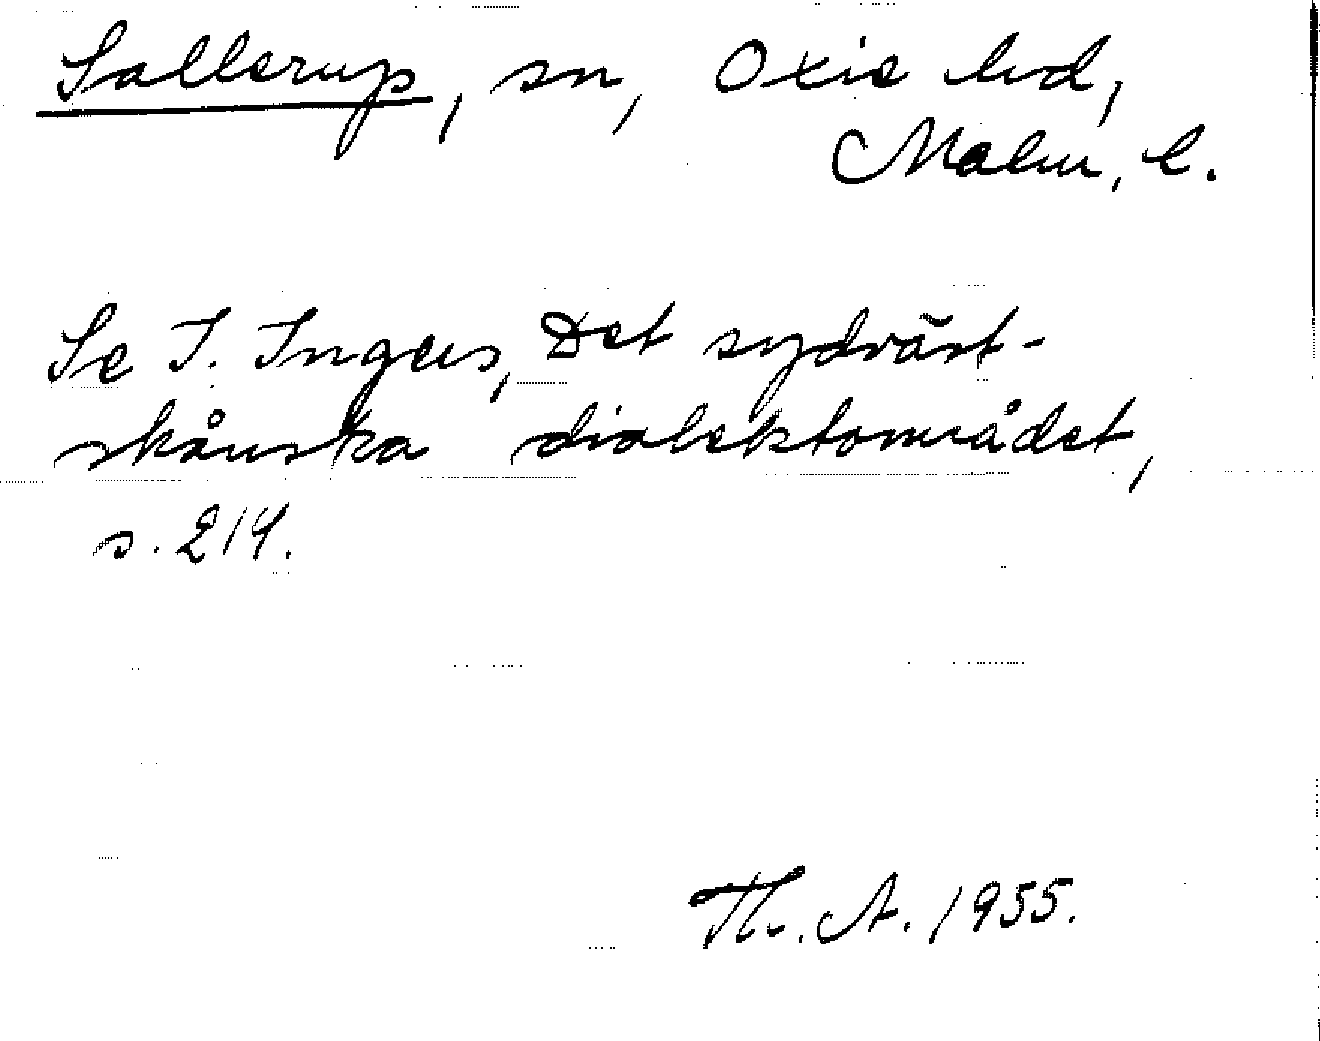 Sallerup, sn, Oxie hd,
Malm. l.
Se I. Ingers, Det sydväst-
skånska dialektområdet,
s. 214.
Th. A. 1955.